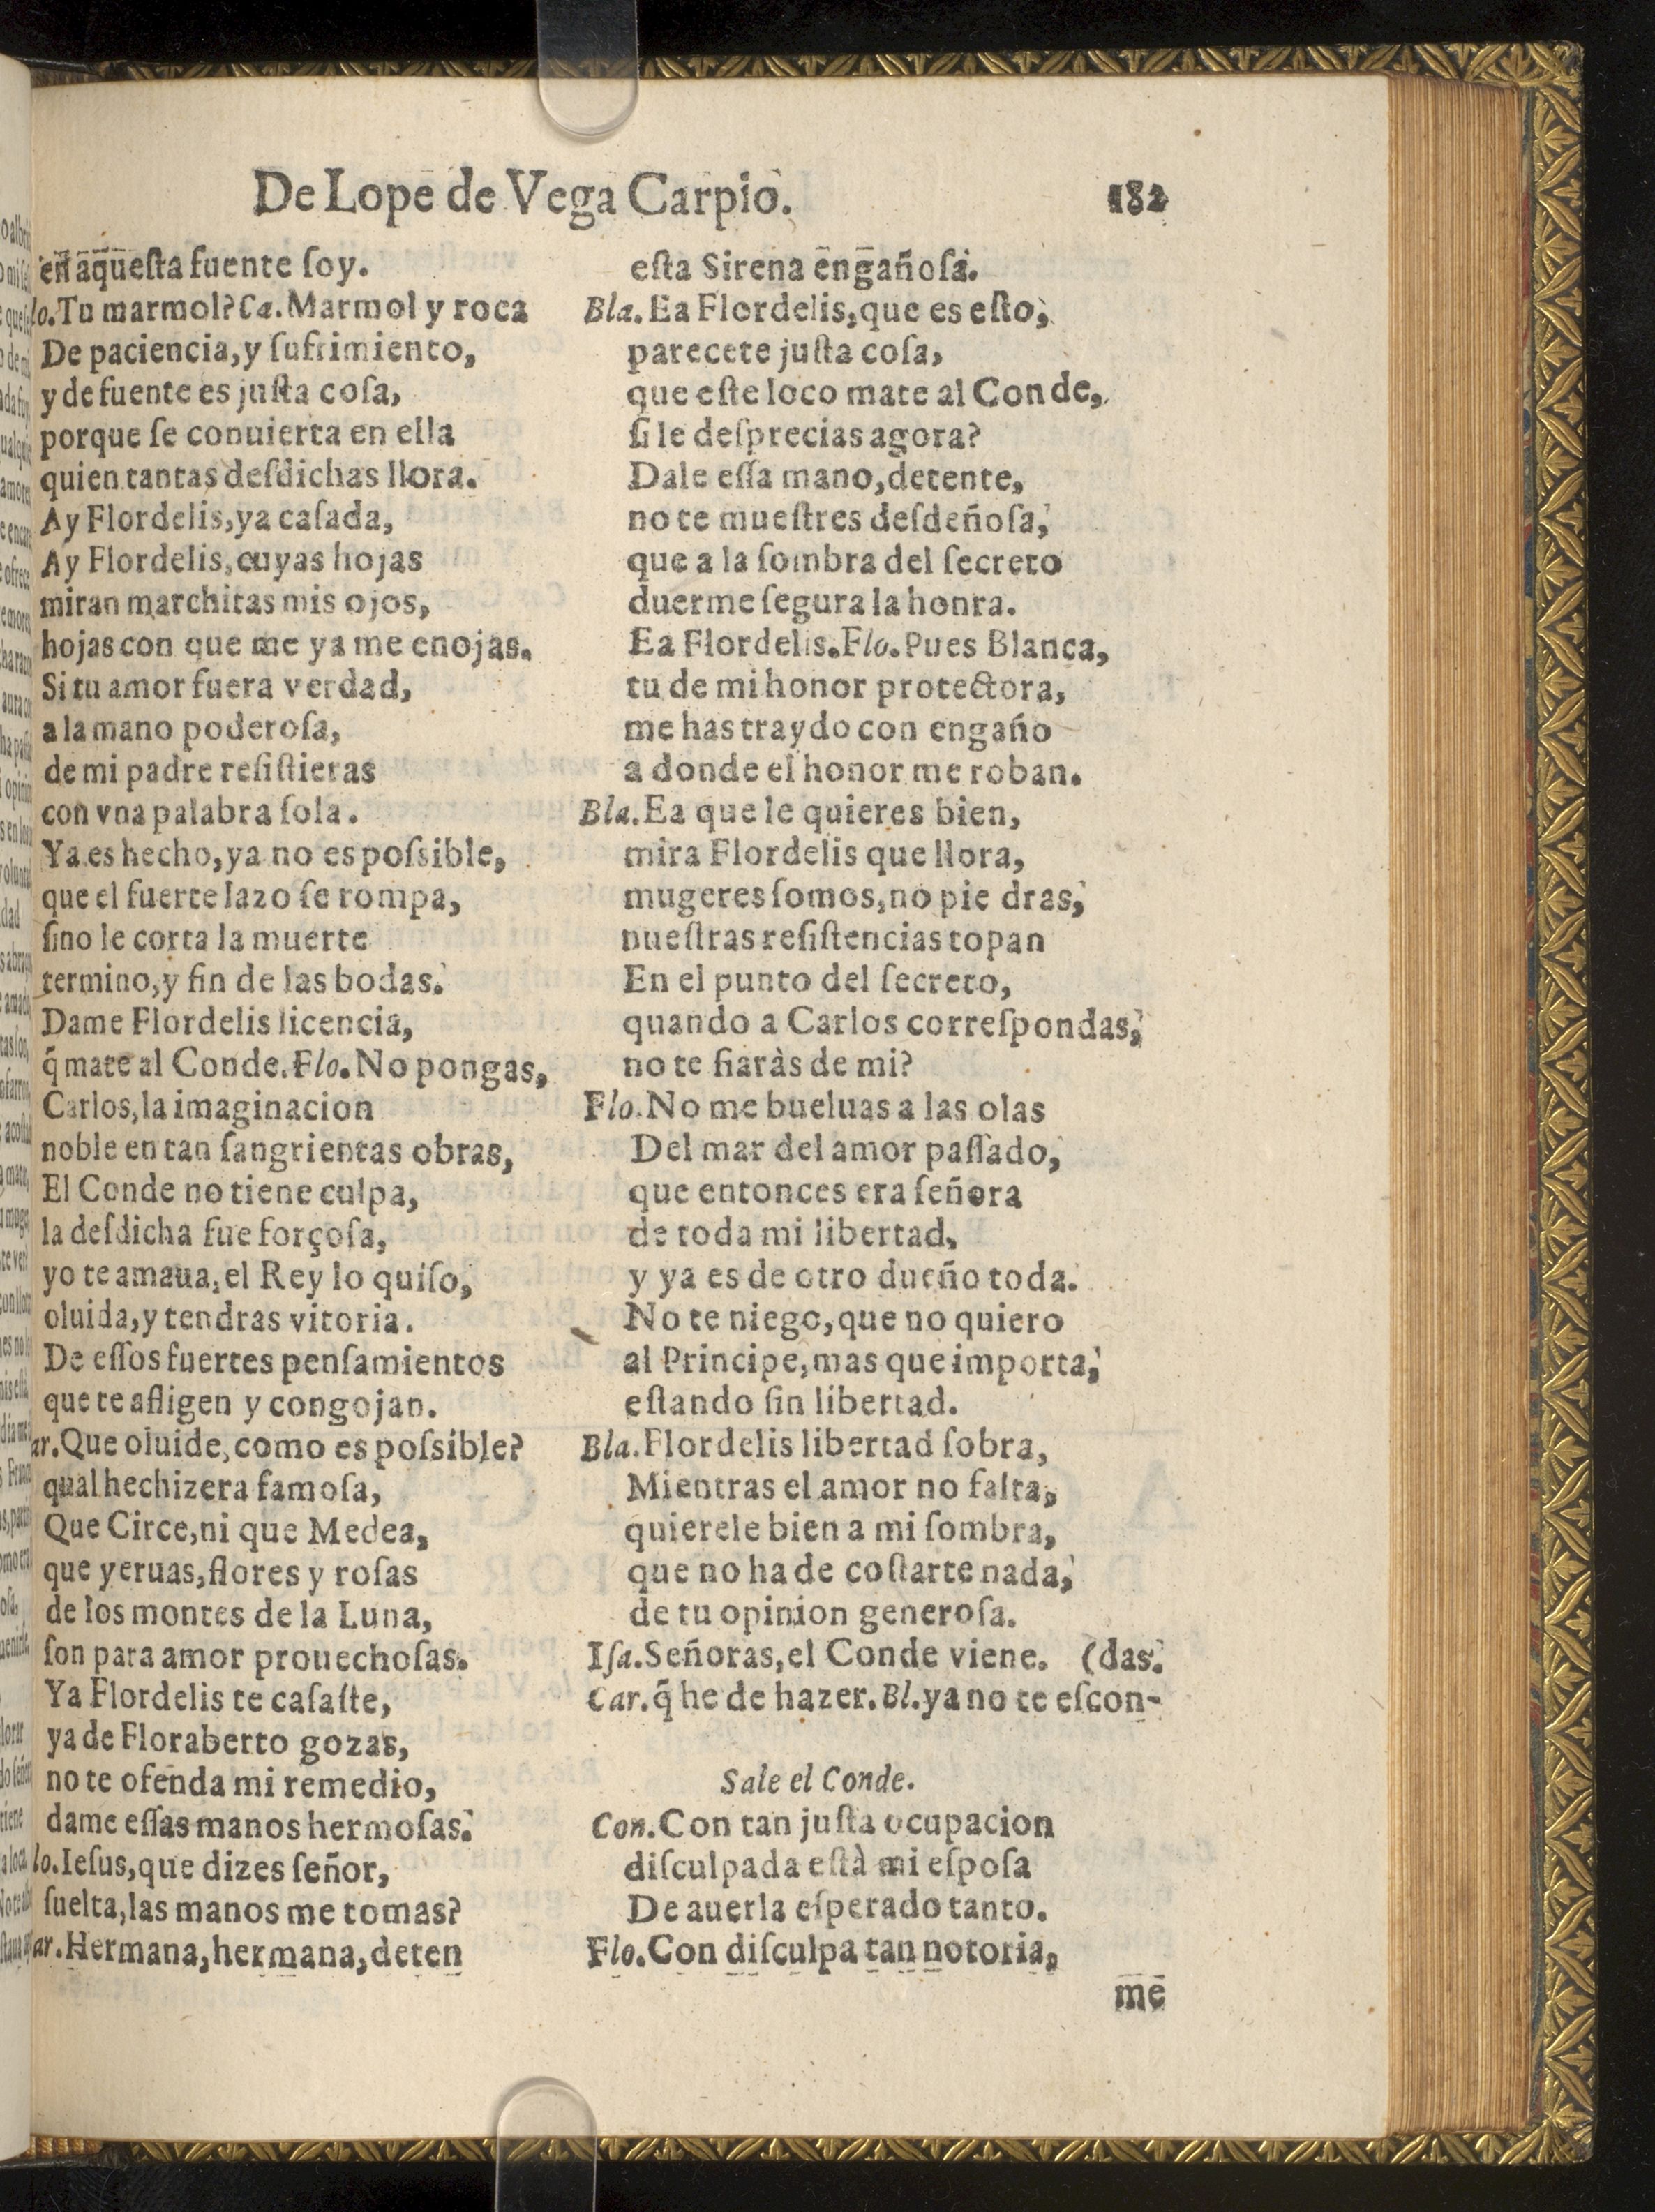 De Lope de Vega Carpio. 182
en aquesta fuente soy.
lo. Tu marmol? Ca. Marmol y roca
De paciencia, y sufrimiento,
y de fuente es justa cosa,
porque se conuierta en ella
quien tantas desdichas llora.
Ay Flordelis, ya casada,
Ay Flordelis, cuyas hojas
miran marchitas mis ojos,
hojas con que me ya me enojas.
Si tu amor fuera verdad,
a la mano poderosa,
de mi padre resistieras
con vna palabra sola.
Ya es hecho, ya no es possible,
que el fuerte lazo se rompa,
sino le corta la muerte
termino, y fin de las bodas.
Dame Flordelis licencia,
q̃ mate al Conde. Flo. No pongas,
Carlos, la imaginacion
noble en tan sangrientas obras,
El Conde no tiene culpa,
la desdicha fue forçosa,
yo te amaua, el Rey lo quiso,
oluida, y tendras vitoria.
De essos fuertes pensamientos
que te afligen y congojan.
ar. Que oluide, como es possible?
qual hechizera famosa,
Que Circe, ni que Medea,
que yeruas, flores y rosas
de los montes de la Luna,
son para amor prouechosas.
Ya Flordelis te casaste,
ya de Floraberto gozas,
no te ofenda mi remedio,
dame essas manos hermosas.
lo. Iesus, que dizes señor,
suelta, las manos me tomas?
ar. Hermana, hermana, deten
esta Sirena engañosa.
Bla. Ea Flordelis, que es esto,
parecete justa cosa,
que este loco mate al Conde,
si le desprecias agora?
Dale essa mano, detente,
no te muestres desdeñosa,
que a la sombra del secreto
duerme segura la honra.
Ea Flordelis. Flo. Pues Blanca,
tu de mi honor protectora,
me has traydo con engaño
a donde el honor me roban.
Bla. Ea que le quieres bien,
mira Flordelis que llora,
mugeres somos, no pie dras,
nuestras resistencias topan
En el punto del secreto,
quando a Carlos correspondas,
no te fiaràs de mi?
Flo. No me bueluas a las olas
Del mar del amor passado,
que entonces era señora
de toda mi libertad,
y ya es de otro dueño toda.
No te niego, que no quiero
al Principe, mas que importa,
estando sin libertad.
Bla. Flordelis libertad sobra,
Mientras el amor no falta,
quierele bien a mi sombra,
que no ha de costarte nada,
de tu opinion generosa.
Isa. Señoras, el Conde viene. (das.
Car. q̃ he de hazer. Bl. ya no te escon-
Sale el Conde.
Con. Con tan justa ocupacion
disculpada està mi esposa
De auerla esperado tanto.
Flo. Con disculpa tan notoria,
me